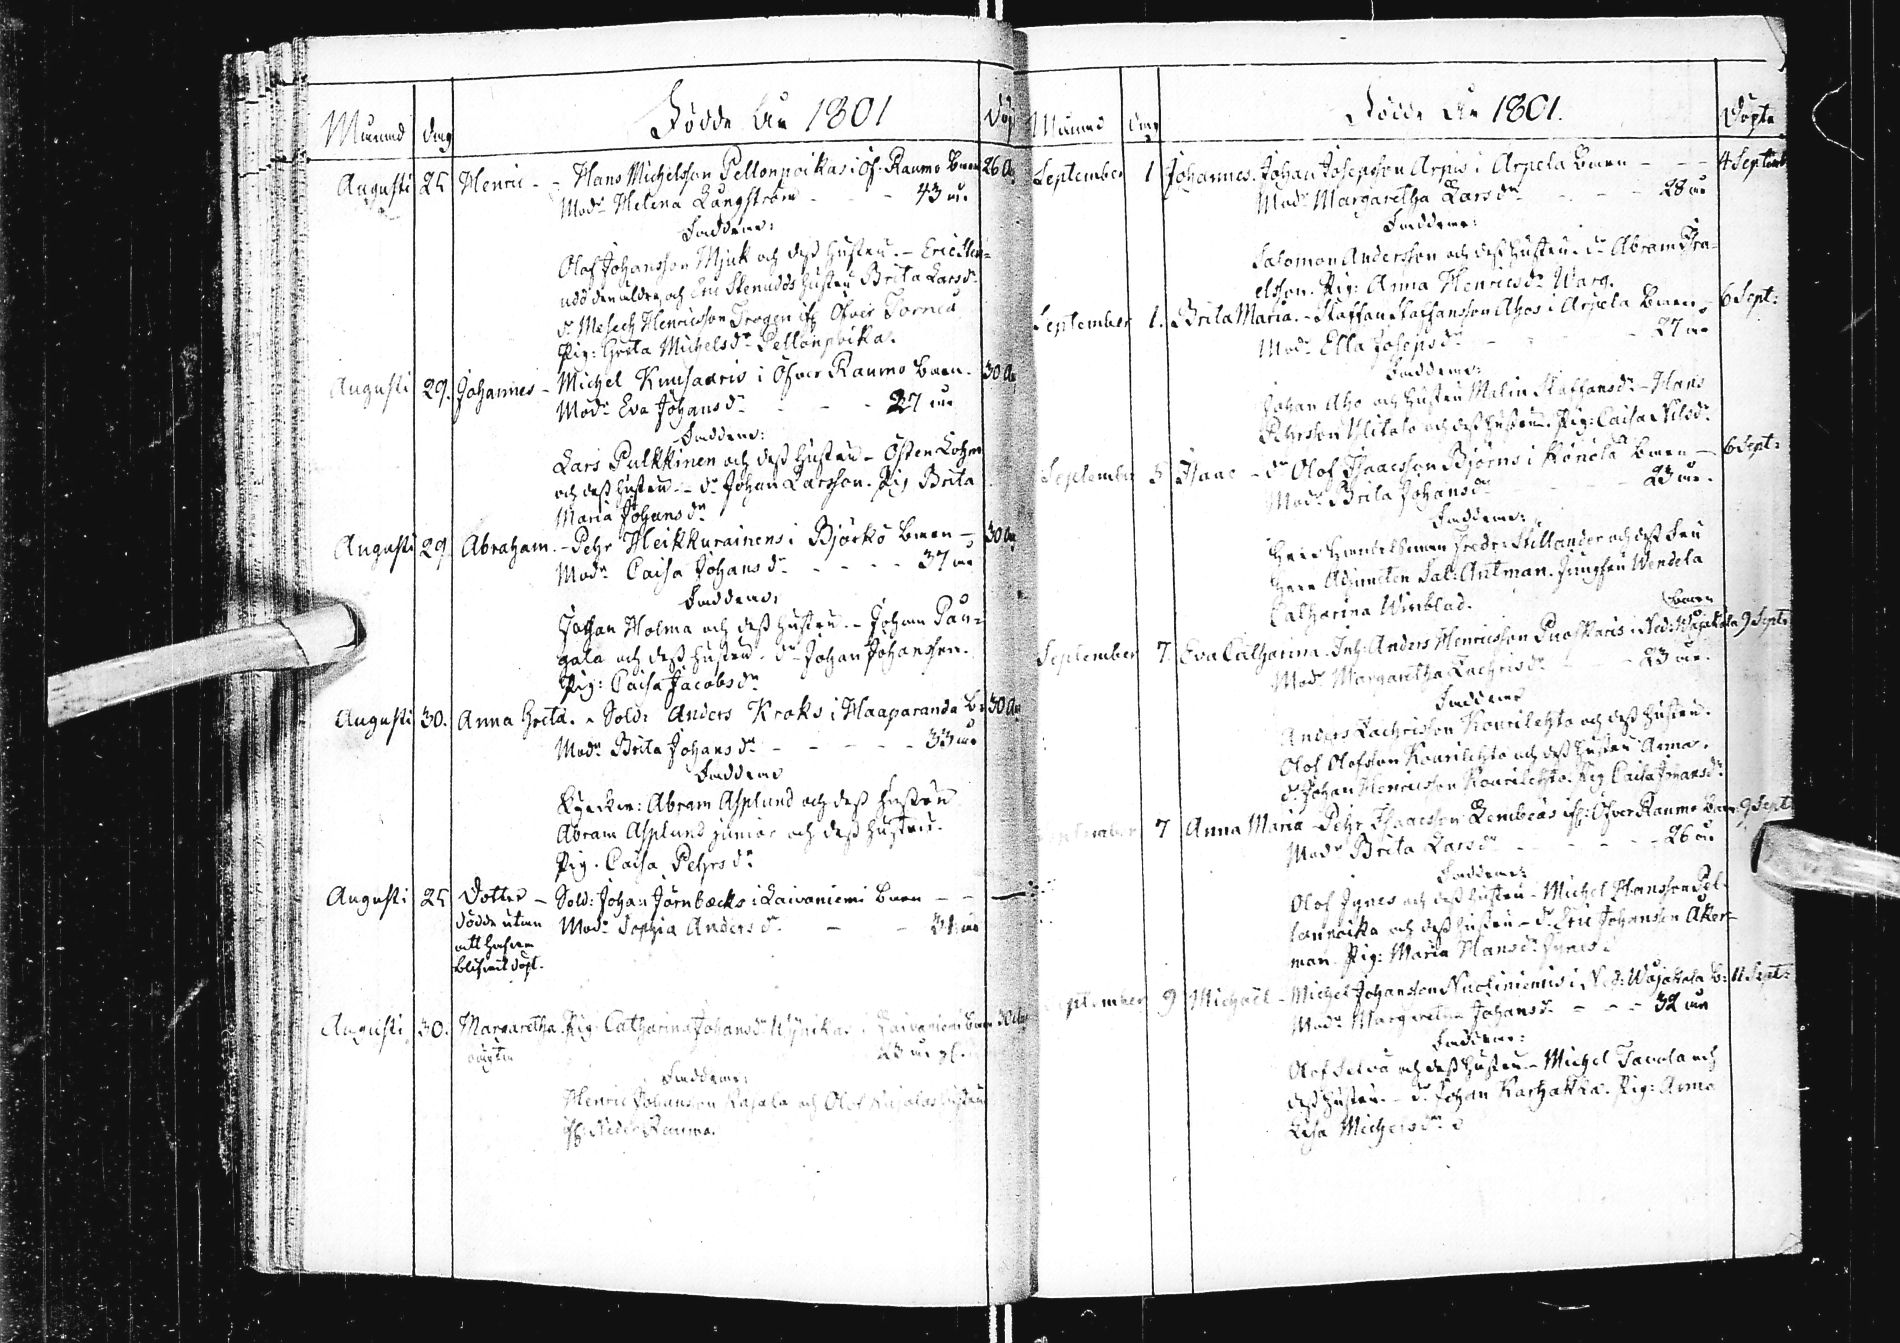 Födde År 1801
Månad dag Döp
Augusti 25 Henric - - Hans Michelsson Pellonpoikas i Öf. Raumo Barn 26 A
Modr Helena Långström - - - 43 år.
Faddrar:
Olof Johansson Mjuk och dess hustru. - Eric Sten-
udd den äldre, och Eric Stenudds hustru Brita Larsdr
dr Mesech Henricsson Trogen if: Öfver Torneå
Pig: Greta Michelsdr Pellonpoika.
Augusti 29. Johannes - Michel Knihsaaris i Öfver Raumo Barn. 30 A
Modr Eva Johansdr - - - 27 år
Faddrar:
Lars Pulkkinen och dess hustru - Östen Lohm
och dess hustru - dr Johan Larsson. Pig Brita
Maria Johansdr
Augusti 29. Abraham. - Pehr Heikkurainens i Björkö Barn - 30 A
Modr Caisa Johansdr - - - - 37 år
Faddrar:
Johan Holma och dess hustru. - Johan Pau-
gala och dess hustru. dr Johan Johansson.
Pig: Caisa Jacobsdr
Augusti 30. Anna Greta. - Sold: Anders Kroks i Haaparanda B: 30 A
Modr Brita Johansdr - - - - - 33 år
Faddrar
Abram Asplund och dess hustru
Abram Asplund junior och dess hustru.
Pig. Caisa Pehrsdr
Augusti 25 Dotter - Sold: Johan Jernbäcks i Laivaniemi Barn - - -
födde utan Modr Sophia Andersdr - - 31 år
att hafva
blifvit döpt.
Augusti 30. Margaretha Pig: Catharina Johansdr Nynikas i Laivaniemi Barn 30 A
oägta 23 år
Faddrar:
Henric Johansson Kajala och Olof Kajalas hustru
if: Neder Raumo.
Födde År 1801.
Månad dag Döpte
September 1 Johannes. Johan Josepsson Arpis i Arpela Barn - - - 4 Septemb
Modr Margaretha Larsdr - - 28 år
Faddrar:
Salomon Andersson och dess hustru. dr Abram Isra-
elsson. Pig: Anna Henricsdr Warg.
September 1. Brita Maria. - Staffan Staffansson Ahos i Arpela Barn - 6 Sept:
Modr Ella Josepsdr - - - 27 år
Faddrar:
Johan Aho och hustru Malin Staffansdr - Hans
Pehrsson Ylitalo och dess hustru. Pig: Caisa Nilsdr
September 3 Isaac - dr Olof Isaacsson Björns i Könölä Barn - 6 Sept:
Modr Brita Johansdr - - 23 år.
Faddrar:
Herr Fredr: Stillander och dess Fru
Herr Adjuncten Sal: Antman. Jungfru Wendela
Catharina Winblad.
Barn
September 7. Eva Catharina. Inh: Anders Henricsson Puoskaris i Ned: Wojakala 9 Sept:
Modr Margaretha Zachrisdr - - - 23 år.
Faddrar
Anders Zachrisson Kourilehto och dess hustru.
Olof Olofsson Kourilehto och dess hustru Anna.
dr Johan Henricsson Kourilehto. Pig Caisa Johansdr
September 7 Anna Maria - Pehr Isaacsson Lembeäs if: Öfver Raumo Barn 9 Sept
Modr Brita Larsdr - - - - - 26 år
Faddrar:
Olof Jynes och dess hustru - Michel Hansson Pel-
lonpoika och dess hustru - dr Eric Johansson Åker-
man. Pig: Maria Hansdr Jynes
September 9 Michaël - Michel Johansson Nuotiniemis i Ned: Wojakala B: 11 Sept:
Modr Margaretha Johansdr - - - 32 år
Faddrar:
Olof Selva och dess hustru. - Michel Tavola och
dess hustru. - dr Johan Karhakka. Pig: Anna
Lisa Michelsdr